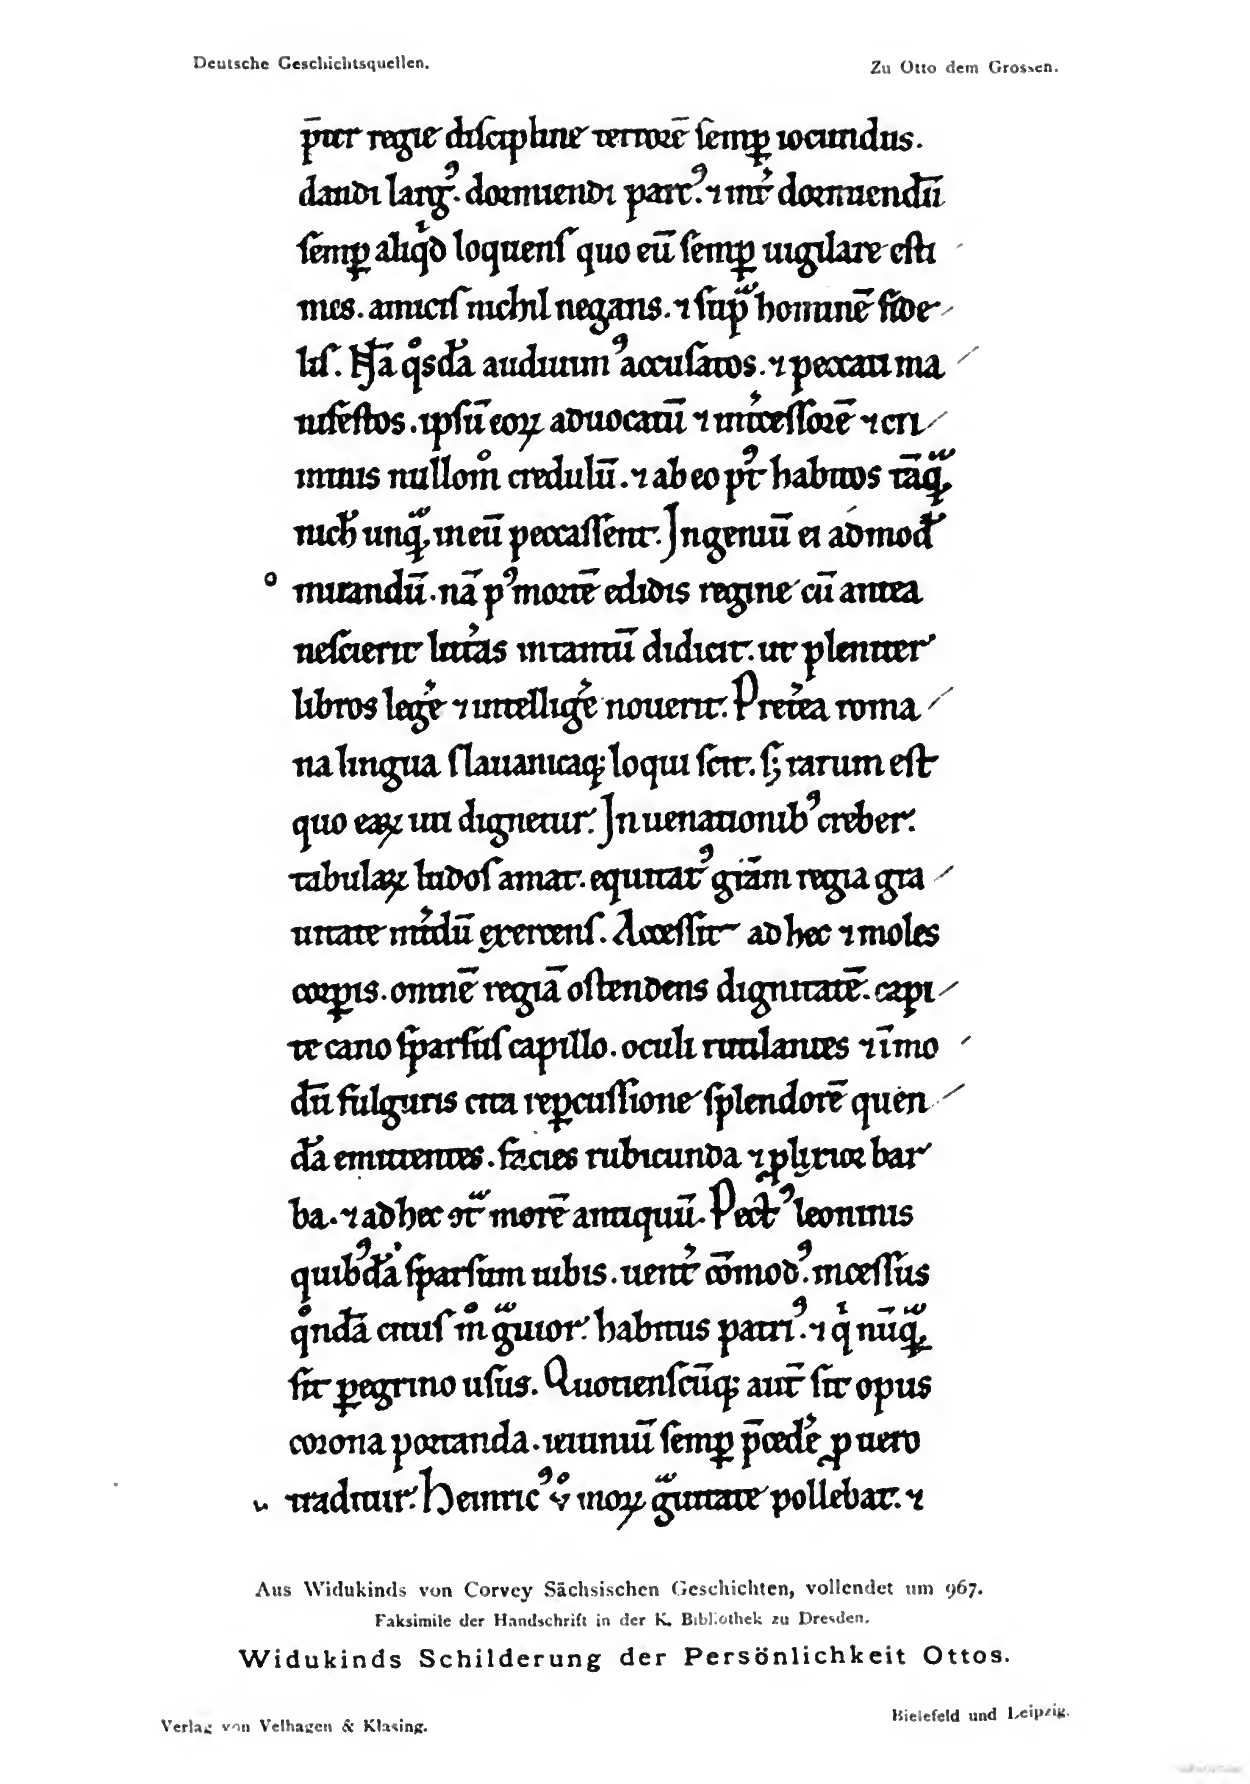 Deutsche Geschichtsquellen.
Zu Otto dem Grossen.
p̄ter regie discipline terrorē semꝑ iocundus.
dandi largꝰ. dormiendi parcꝰ. ⁊ int̉ dormiendū
semꝑ aliqͥd loquens quo eū semꝑ uigilare esti
mes. amicis nichil negans. ⁊ sup̲ hominē fide
lis. Nā qͦsdā audiuimꝰ accusatos. ⁊ peccati ma
nifestos. ipsū eoꝝ aduocatū ⁊ int̉cessorē ⁊ cri
minis nullomͦ credulū. ⁊ ab eo ptꝰ habitos tāqᷓ
nich̄ unqᷓ in eū peccassent. Ingeniū ei admod̄
o mirandū. nā pꝰ mortē edidis regine cū antea
nescierit litt̉as intantū didicit. ut pleniter
libros leg̉e ⁊ intellig̉e nouerit. Pret̉ea roma
na lingua slauanicaqꝫ loqui scit. sꝫ rarum est
quo eaꝝ uti dignetur. In uenationibꝰ creber.
tabulaꝝ ludos amat. equitatꝰ grām regia gra
uitate int̉dū exercens. Accessit ad hec ⁊ moles
corꝑis. omnē regiā ostendens dignitatē. capi
te cano sparsus capillo. oculi rutilantes ⁊ īmo
dū fulguris cita reꝑcussione splendorē quen
dā emittentes. facies rubicunda ⁊ ꝓlixior bar
ba. ⁊ ad hec ↄtᷓ morē antiquū. Pectꝰ leoninis
quibꝰdā sparsum iubis. uent̉ cōmodꝰ. incessus
qͦndā citus mͦ gᷓuior. habitus patriꝰ. ⁊ qͥ nūqᷓ
sit ꝑegrino usus. Quotienscūqꝫ aut̄ sit opus
corona portanda. ieiuniū semꝑ p̄ced̉e ꝓ uero
u traditur. Heinricꝰ vͦ moꝝ gᷓuitate pollebat. ⁊
Aus Widukinds von Corvey Sächsischen Geschichten, vollendet um 967.
Faksimile der Handschrift in der K. Bibliothek zu Dresden.
Widukinds Schilderung der Persönlichkeit Ottos.
Verlag von Velhagen & Klasing.
Bielefeld und Leipzig.